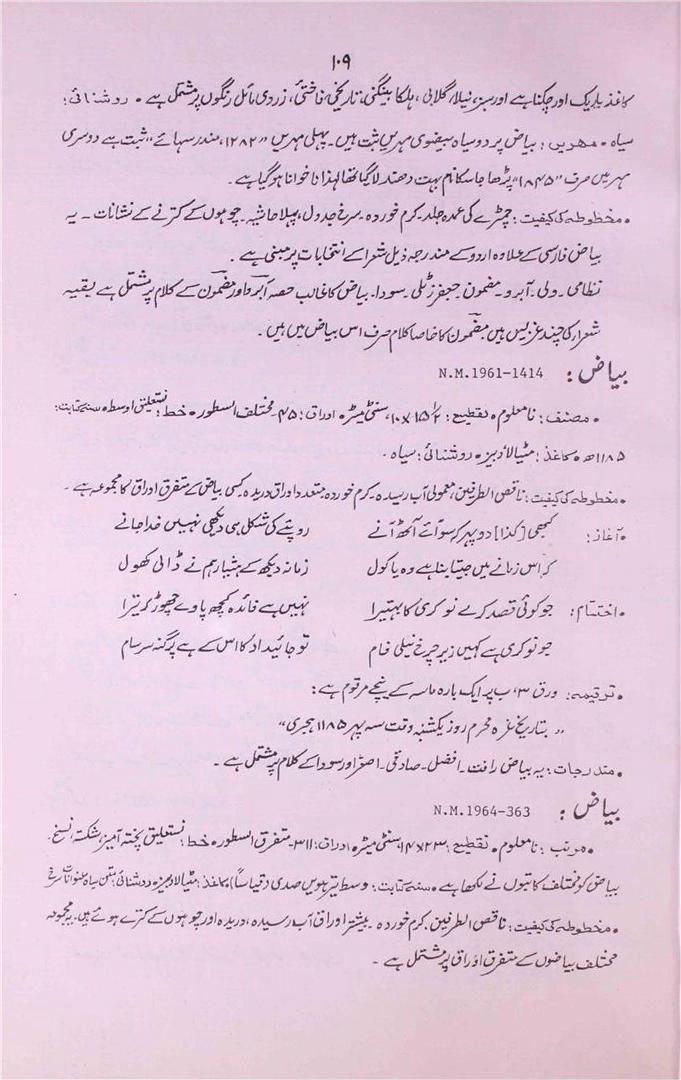 ۱۰۹
کاغذ باریک اور چکنا ہے اور سبز، نیلا، گلابی، ہلکا بینگنی، تاریخی، ناختئی، زردی مائل رنگوں پر مشتمل ہے • روشنائی:
سیاہ • مہریں: بیاض پر دو سیاہ بیضوی مہریں ثبت ہیں۔ پہلی مہر میں "۱۲۸۲، مندر سہائے" ثبت ہے دوسری
مہر میں صرف "۱۸۴۵" پڑھا جاسکا نام بہت دھندلا گیا تھا لہٰذا ناخوانا ہوگیا ہے۔
• مخطوطہ کی کیفیت: چمڑے کی عمدہ جلد۔ کرم خوردہ۔ سرخ جدول، پہلا حاشیہ۔ چوہوں کے کترنے کے نشانات۔ یہ
بیاض فارسی کے علاوہ اردو کے مندرجہ ذیل شعرا کے انتخابات پر مبنی ہے۔
نظامی۔ ولی۔ آبرو۔ مضمون۔ جعفر زٹلی۔ سودا۔ بیاض کا غالب حصہ آبرو اور مضمون کے کلام پر مشتمل ہے بقیہ
شعراء کی چند غزلیں ہیں مضمون کا خاصا کلام صرف اس بیاض میں ہیں۔
بیاض: N.M.1961-1414
• مصنف: نامعلوم • تقطیع: ۱۵ ۱/۲×۱۰، سنٹی میٹر • اوراق: ۴۵۔ مختلف السطور • خط: نستعلیق اوسط • سنہ کتابت:
۱۱۸۵ھ • کاغذ: مٹیالا دبیز • روشنائی: سیاہ۔
مخطوطہ کی کیفیت: ناقص الطرفین، معمولی آب رسیدہ۔ کرم خوردہ متعدد اوراق دریدہ۔ کسی بیاض کے متفرق اوراق کا مجموعہ ہے۔
• آغاز: کبھی [کذا] دو پہر کر سو آئے آٹھ آنے روپئے کی شکل ہی دیکھی نہیں خدا جانے
کہ اس زمانے میں جیتا بنا ہے وہ یا کول زمانہ دیکھ کے ہتیار ہم نے ڈالی کھول
• اختتام: جو کوئی قصد کرے نوکری کا بہتیرا نہیں ہے فائدہ کچھ پاوے چھوڑ کر تیرا
جو نوکری ہے کہیں زیر چرخ نیلی فام تو جائیداد کا اس کے ہے پرگنہ سرسام
• ترقیمہ: ورق ۳، ب پر ایک بارہ ماسہ کے نیچے مرقوم ہے:
"بتاریخ غرہ محرم روز یکشنبہ وقت سہ پہر ۱۱۸۵ ہجری"
• مندرجات: یہ بیاض رافت۔ افضل۔ صادقی۔ اصغر اور سودا کے کلام پر مشتمل ہے۔
بیاض: N.M.1964-363
• مرتب: نامعلوم • تقطیع: ۲۳×۱۴، سنٹی میٹر • اوراق: ۳۱۱۔ متفرق السطور • خط: نستعلیق پختہ آمیز، شکستہ، نسخ۔
بیاض کو مختلف کاتبوں نے لکھا ہے • سنہ کتابت: وسط تیرہویں صدی (قیاساً) • کاغذ: مٹیالا دبیز • روشنائی: متن سیاہ عنوانات سرخ
• مخطوطہ کی کیفیت: ناقص الطرفین۔ کرم خوردہ۔ بیشتر اوراق آب رسیدہ، دریدہ اور چوہوں کے کترے ہوئے ہیں۔ یہ مجموعہ
مختلف بیاضوں کے متفرق اوراق پر مشتمل ہے۔